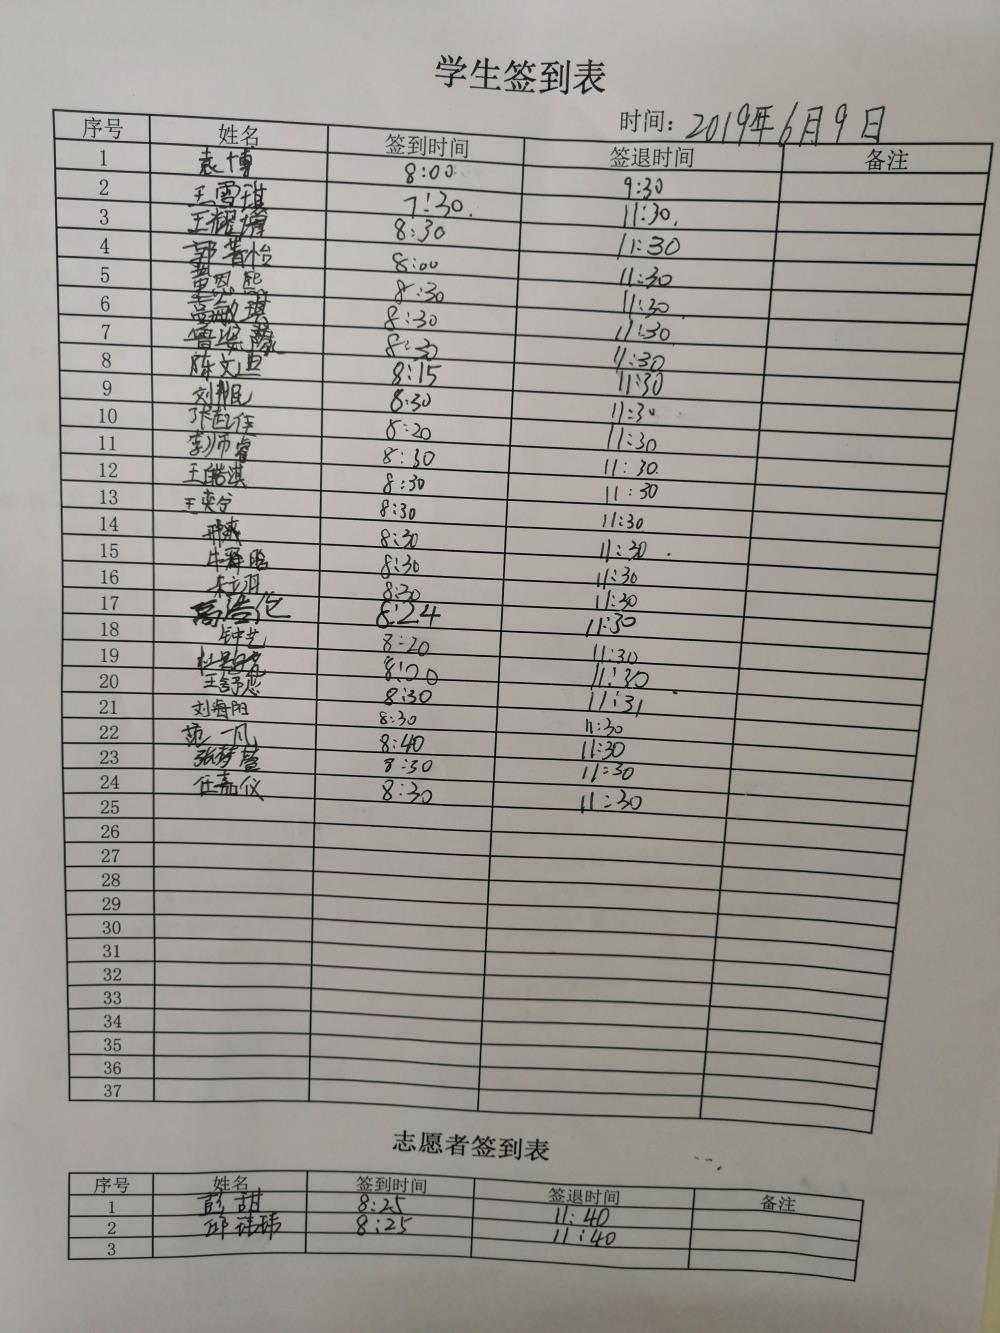 学生签到表
时间：2019年6月9日
序号 姓名 签到时间 签退时间 备注
1 袁博 8:00 9:30
2 王雪琪 7:30. 11:30.
3 王耀 8:30 11:30
4 郭 怡 8:00 11:30
5 恩熙 8:30 11:30
6 高敏琪 8:30 11:30
7 鲁 8:30 11:30
8 陈文 8:15 11:30
9 刘 8:30 11:30
10 张 8:20 11:30
11 李师睿 8:30 11:30
12 王皓淇 8:30 11:30
13 王奕 8:30 11:30
14 8:30 11:30
15 牛 8:30 11:30
16 朱立羽 8:30 11:30
17 高浩 8:24 11:30
18 钟艺 8:20 11:30
19 杜 8:00 11:30
20 王 8:30 11:31
21 刘海阳 8:30 11:30
22 范一凡 8:40 11:30
23 张梦萱 8:30 11:30
24 任嘉仪 8:30 11:30
25
26
27
28
29
30
31
32
33
34
35
36
37
志愿者签到表
序号 姓名 签到时间 签退时间 备注
1 彭甜 8:25 11:40
2 邱 玮 8:25 11:40
3